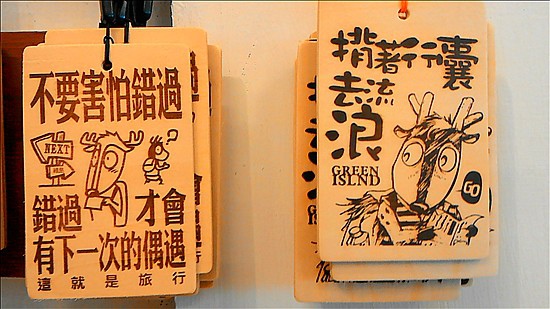 不要害怕錯過
NEXT
?
錯過 才會
有下一次的偶遇
這就是旅行
揹著行囊
去流
浪
GREEN
ISLND
GO